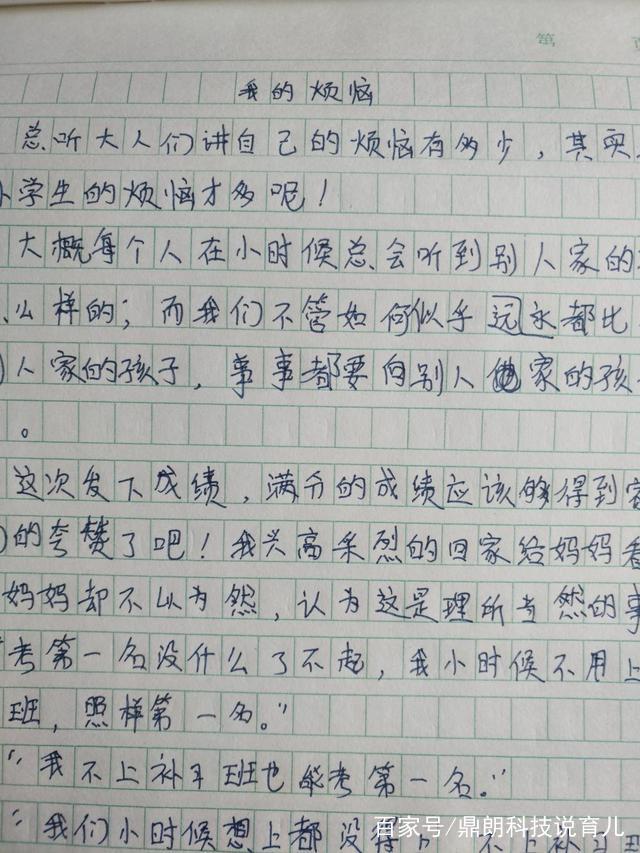 第 页
我的烦恼
总听大人们讲自己的烦恼有多少，其实
小学生的烦恼才多呢！
大概每个人在小时候总会听到别人家的
么样的；而我们不管如何似乎远永都比
人家的孩子，事事都要向别人家的孩
。
这次发下成绩，满分的成绩应该够得到家
的夸赞了吧！我兴高采烈的回家给妈妈看
妈妈却不以为然，认为这是理所当然的事
考第一名没什么了不起，我小时候不用上
班，照样第一名。”
“我不上补习班也能考第一名。”
“我们小时候想上都没得上 不上补习班
百家号/鼎朗科技说育儿